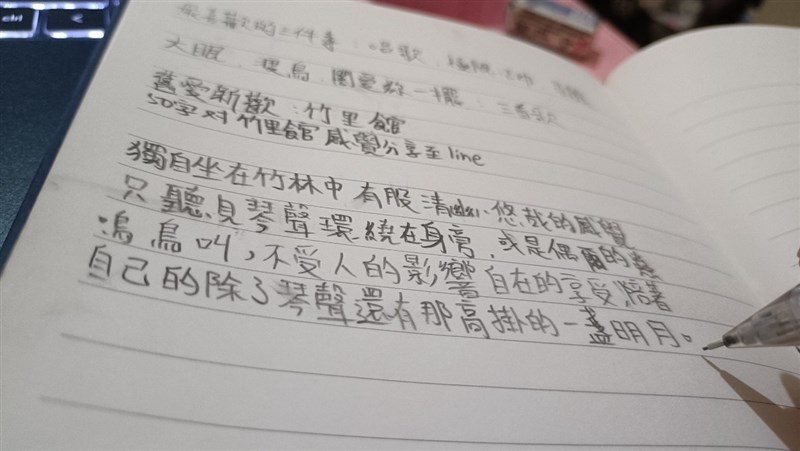 ctrl
最喜歡的三件事：唱歌
大眼
舊愛新歡：竹里館
50字对竹里館感覺分享至line
獨自坐在竹林中有股清幽、悠哉的感覺
只聽見琴聲環繞在身旁，或是偶爾的
鳴鳥叫，不受人的影響自在的享受，陪著
自己的除了琴聲還有那高掛的一盞明月。